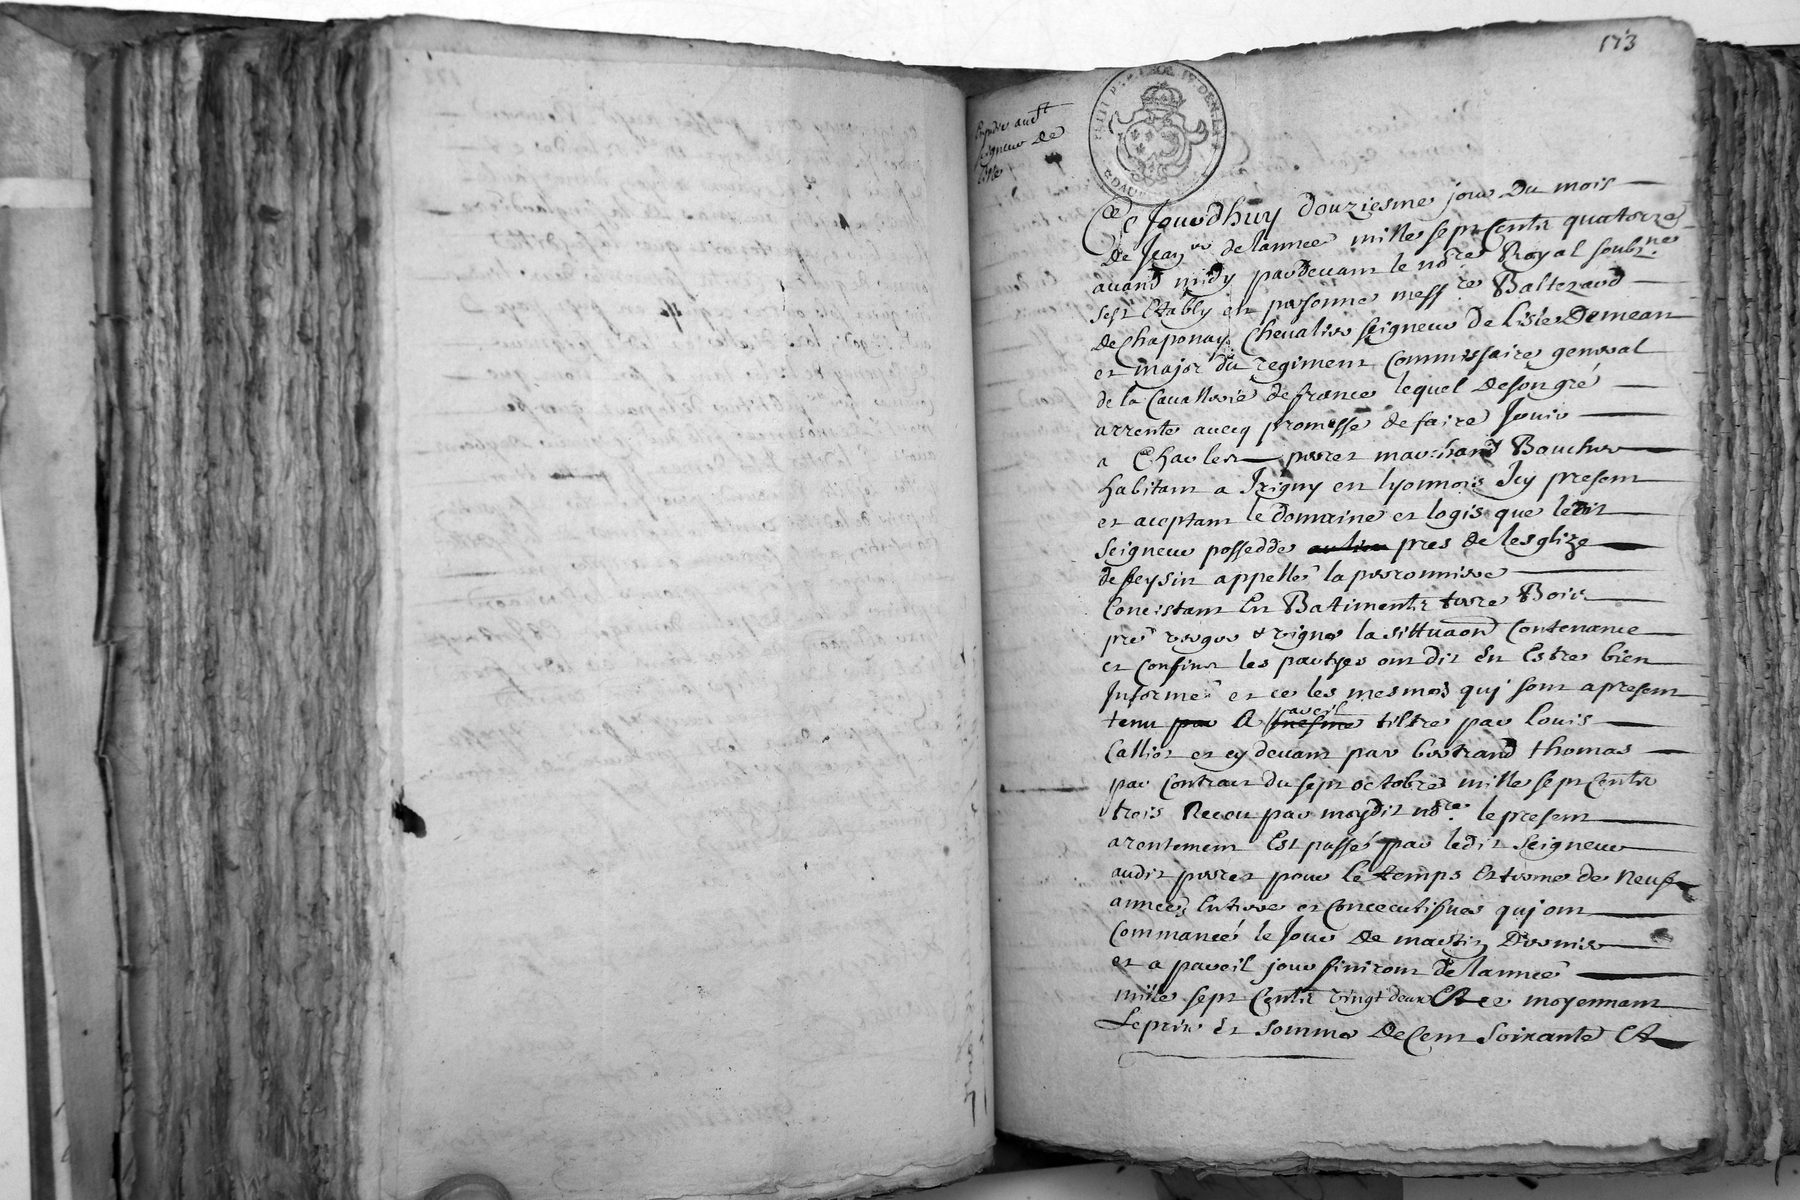 173
Expedié audt
seigneur de
lisle
Ce Jourdhuy douziesme jour du mois
de Janvr de lannee mille sept Cents quatorze
avand midy pardevant le nore Royal soubzne
sest Estably en personne messire Baltezard
de Chaponay Chevalier seigneur de Lisle Demean
et major du regiment Commissaire general
de la Cavallerie de france lequel de son gré
arrente avecq promesse de faire Jouir
a Charles perret marchand Boucher
habitant a Irigny en lyonnois Icy present
et aceptant le domaine et logis que ledit
seigneur possedde au lieu pres de lesglize
de feysin appellé la perronniere
Concistant En Batiments terre Bois
pré verger & vigne la sittuaon Contenance
et Confins les partyes ont dit En Estre bien
Informé et ce les mesmes quj sont apresent
tenu par A mesme pareil tiltre par Louis
Calliot et cy devant par bertrand thomas
par Contrat du sept octobre mille sept Cents
trois Receu par moydit nore. le present
arentement Est passé par ledit seigneur
audit perret pour le temps Et terme de neuf
années Entiere et Concecutifves quj ont
Commancé le Jour de martin Dernier
et a pareil jour finiront de lannee
mille sept Cents vingt deux Et ce moyennant
Le prix Et somme de Cent soixante Et